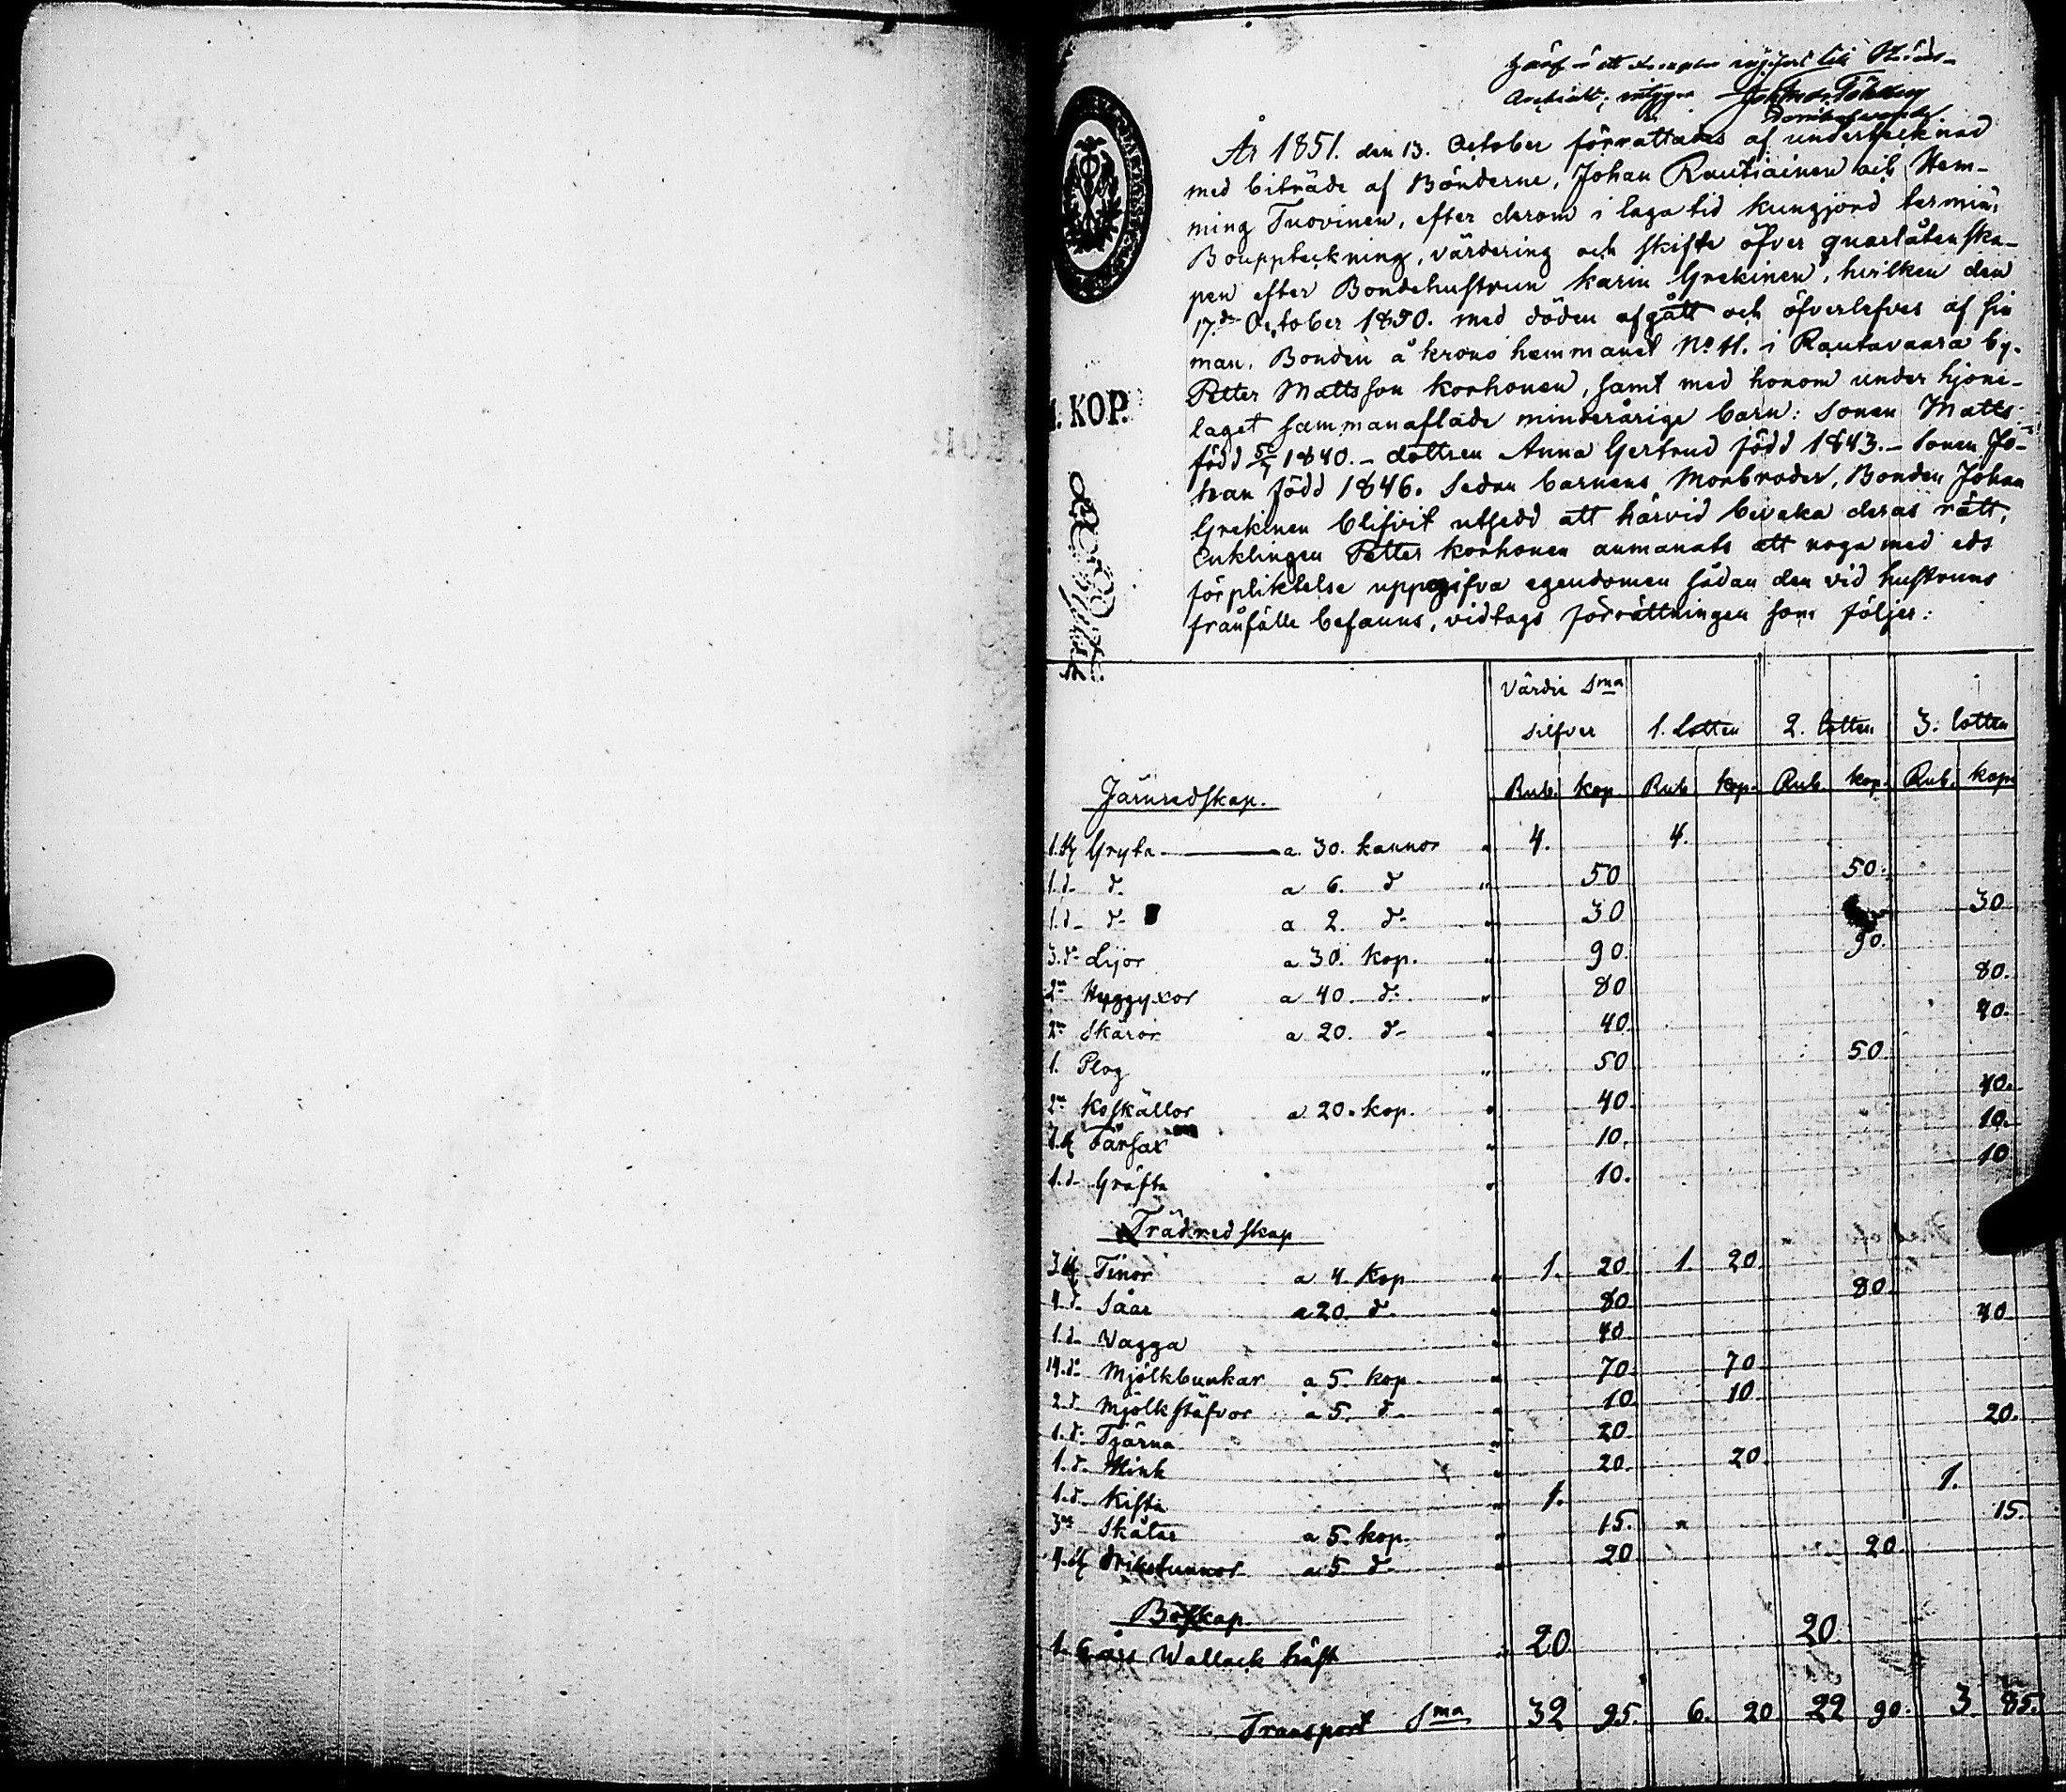 År 1851. den 13. October förrattades af undertecknad
med biträde af Bönderne, Johan Rautiainen och Hem-
ming Tuovinen, efter derom i laga tid kungjord termin,
Bouppteckning, värdering och skifte öfver quarlåtenska-
pen efter Bondehustrun Karin Grekinen, hvilken den
17.de October 1850. med döden afgått och öfverlefves af sin
man, Bonden å krono hemmanet No 11. i Rautavaara by.
Petter Mattsson Korhonen, samt med honom under hjone-
laget sammanaflade minderårige barn: Sonen Matts
född 1840. - dottren Anna Gertrud född 1843. - Sonen Jo-
han född 1846. Sedan barnens Morbroder, Bonden Johan
Grekinen blifvit utsedd att härvid bevaka deras rätt,
Enklingen Petter Korhonen anmanats att noga med eds
förpliktelse uppgifva egendomen sådan den vid hustruns
frånfälle befanns, vidtogs förrättningen som följer:
KOP.
Värdie Sma
Silfver 1. Lotten 2. Lotten 3. Lotten
Järnredskap. Rub. kop. Rub. kop. Rub. kop. Rub. kop.
1. st Gryta a 30. kannor " 4. 4.
1. d. d. a 6. d " 50 50.
1. d. d. a 2. d. " 30 30
3. d. Lijor a 30. kop. " 90. 90.
2ne Huggyxor a 40. d. " 80 80.
2ne Skäror a 20. d. " 40. 40.
1. Plog " 50 50
2ne Koskällor a 20. kop. " 40. 40.
1. st Fårsax " 10. 10.
1. d. Gräfta " 10. 10
Trädredskap
3. st Tinor a 4. Kop " 1. 20. 1. 20.
4. d. Såar a 20. d. " 80 80.
1. d. Vagga " 40 40
14. d. Mjölkbunkar a 5. kop " 70. 70.
2. d. Mjölkstäfvor a 5. d. " 10 10.
1. d. Tjärna " 20. 20.
1. d. " 20. 20.
1. d. Kista " 1. 1.
3ne Skålar a 5. kop. " 15. 15.
4. st a 5. d. " 20 20.
Boskap.
1. 6 års Wallack häst " 20. 20.
Transport Sma 32 95. 6. 20 22 90. 3 85.